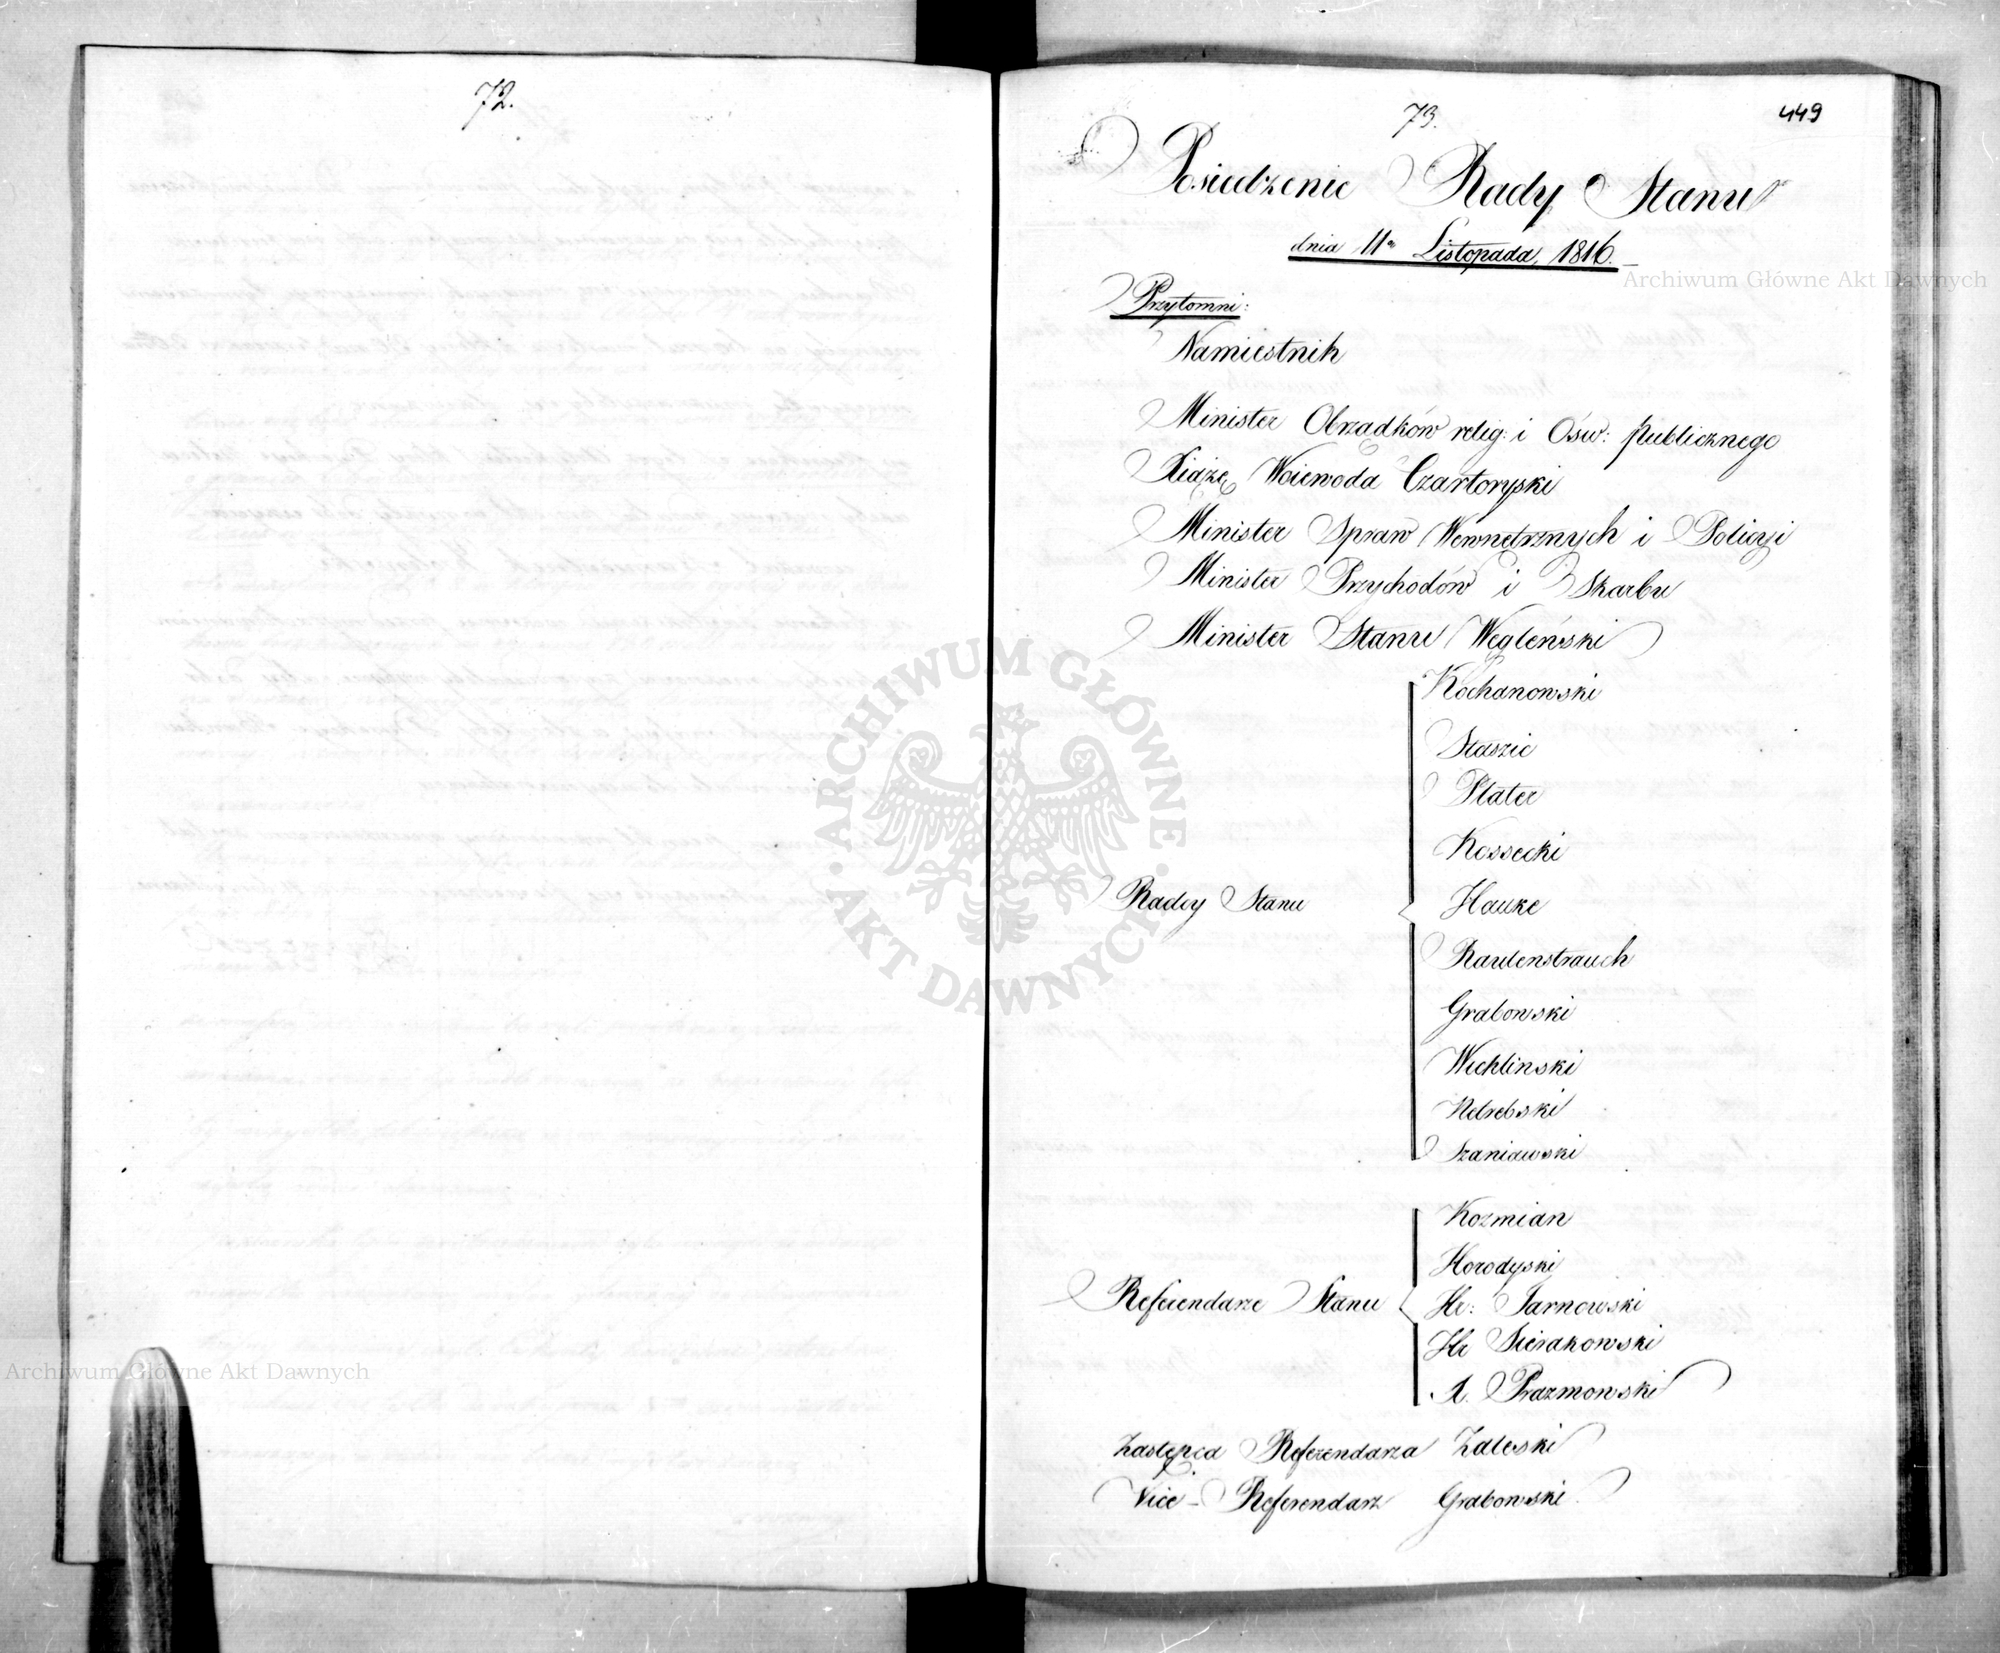 72.
73.
449
Posiedzenie Rady Stanu
dnia 11go Listopada, 1816.
Przytomni:
Namiestnik
Minister Obrządków relig: i Ośw: Publicznego
Xiąże Woiewoda Czartoryski
Minister Spraw Wewnętrznych i Policyi
Minister Przychodów i Skarbu
Minister Stanu Węgleński
Radcy Stanu
Kochanowski
Staszic
Plater
Kossecki
Hauke
Rautenstrauch
Grabowski
Wichlinski
Szaniawski
Referendarze Stanu
Kozmian
Horodyski
Hr: Tarnowski
Hr Sierakowski
A. Prazmowski
Zastępca Referendarza Zaleski
Vice-Referendarz Grabowski.
Archiwum Główne Akt Dawnych
Archiwum Główne Akt Dawnych
ARCHIWUM GŁÓWNE AKT DAWNYCH